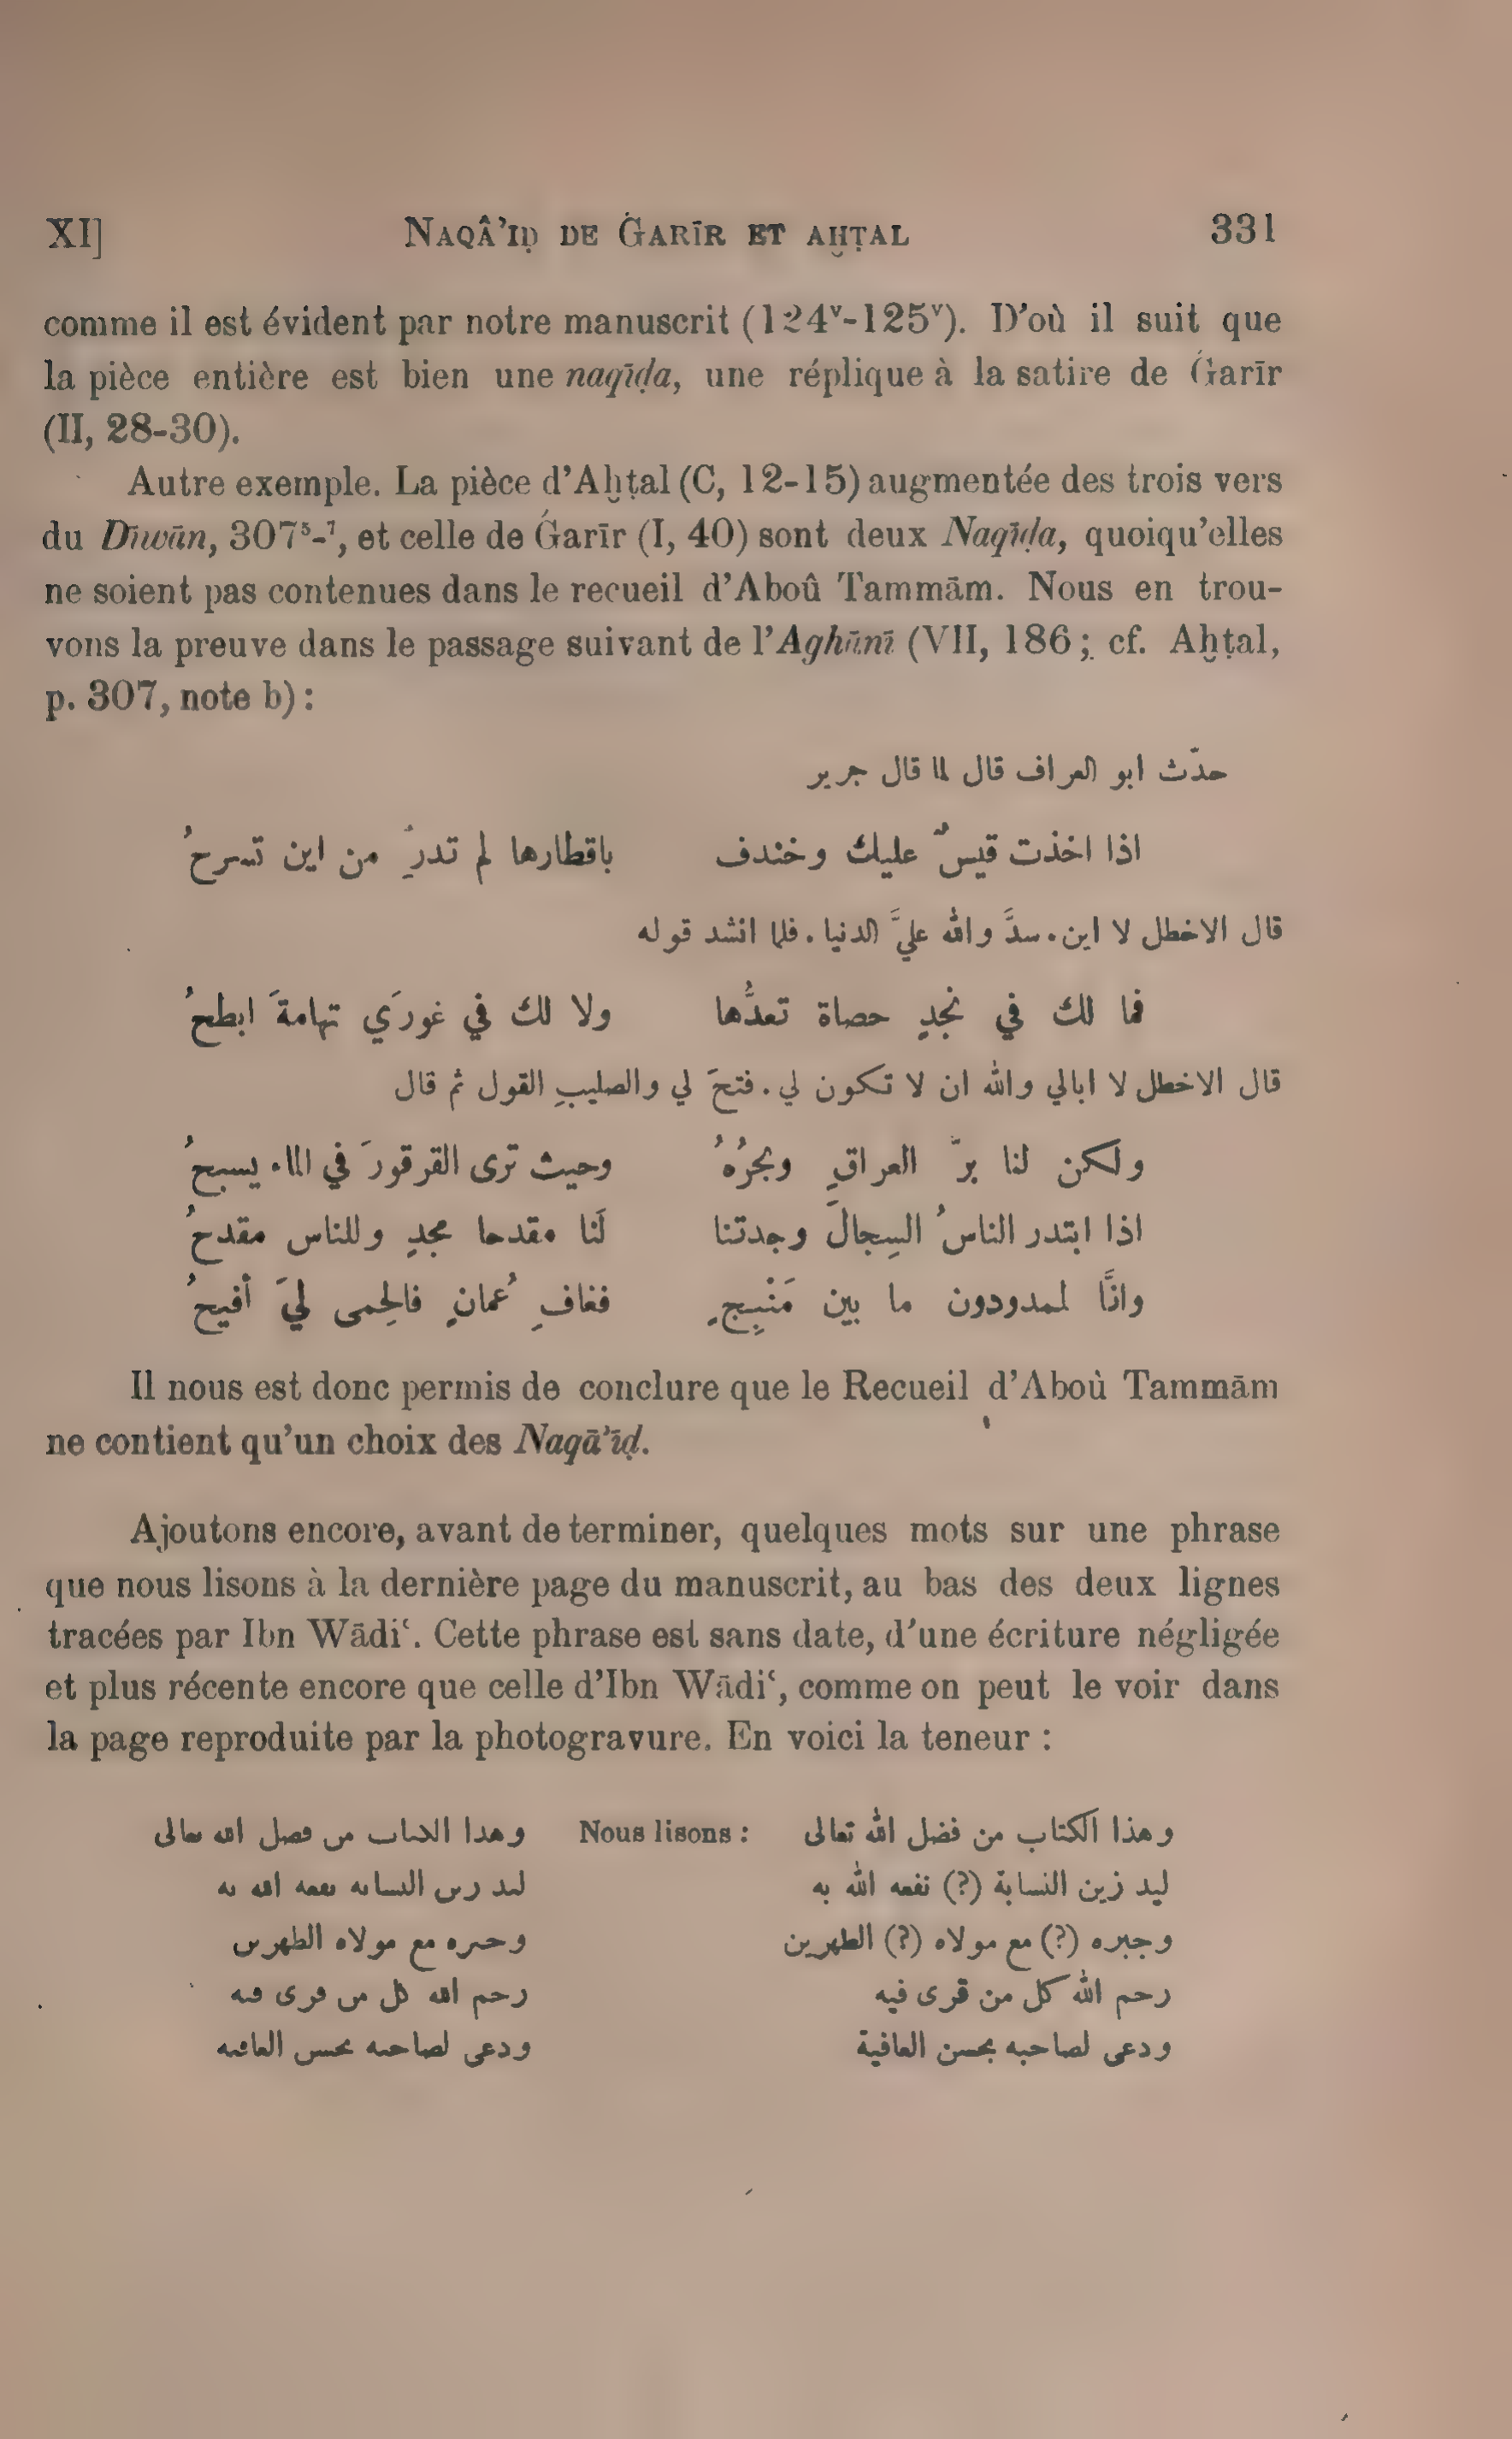 XI] NAQÂ'IḌ DE ĠARĪR ET AḪṬAL 331
comme il est évident par notre manuscrit (124ᵛ-125ᵛ). D'où il suit que
la pièce entière est bien une naqīḍa, une réplique à la satire de Ġarīr
(II, 28-30).
Autre exemple. La pièce d'Aḫṭal (C, 12-15) augmentée des trois vers
du Dīwān, 307⁵-⁷, et celle de Ġarīr (I, 40) sont deux Naqīḍa, quoiqu'elles
ne soient pas contenues dans le recueil d'Aboû Tammām. Nous en trou-
vons la preuve dans le passage suivant de l'Aghānī (VII, 186; cf. Aḫṭal,
p. 307, note b):
حدّث ابو العراف قال لما قال جرير
اذا اخذت قيسٌ عليك وخندف باقطارها لم تدرِ من اين تسرحُ
قال الاخطل لا اين. سدَّ والله عليَّ الدنيا. فلما انشد قوله
فما لك في نجدٍ حصاة تعدُّها ولا لك في غورَي تهامةَ ابطحُ
قال الاخطل لا ابالي والله ان لا تكون لي. فتحَ لي والصليبِ القول ثم قال
ولكن لنا برّ العراقِ وبحرُهُ وحيث ترى القرقورَ في الماء يسبحُ
اذا ابتدر الناسُ السِجالَ وجدتنا لَنا مقدحا مجدٍ وللناس مقدحُ
وانَّا لممدودون ما بين مَنْبِجٍ فغافِ عُمانٍ فالحِمى ليَ أفيحُ
Il nous est donc permis de conclure que le Recueil d'Aboù Tammām
ne contient qu'un choix des Naqā'iḍ.
Ajoutons encore, avant de terminer, quelques mots sur une phrase
que nous lisons à la dernière page du manuscrit, au bas des deux lignes
tracées par Ibn Wādiʿ. Cette phrase est sans date, d'une écriture négligée
et plus récente encore que celle d'Ibn Wādiʿ, comme on peut le voir dans
la page reproduite par la photogravure. En voici la teneur :
وهذا الكتاب من فضل الله تعالى Nous lisons : وهدا الكاب مں فصل الله ىعالى
ليد زين النسابة (?) نفعه الله به لىد رىں الںساىه ىڡعه الله ىه
وجبره (?) مع مولاه (?) الطهرين وحىره مع مولاه الطهرىں
رحم الله كل من قرى فيه رحم الله كل مں ڡرى ڡىه
ودعى لصاحبه بحسن العافية ودعى لصاحىه ىحسں العاڡىه